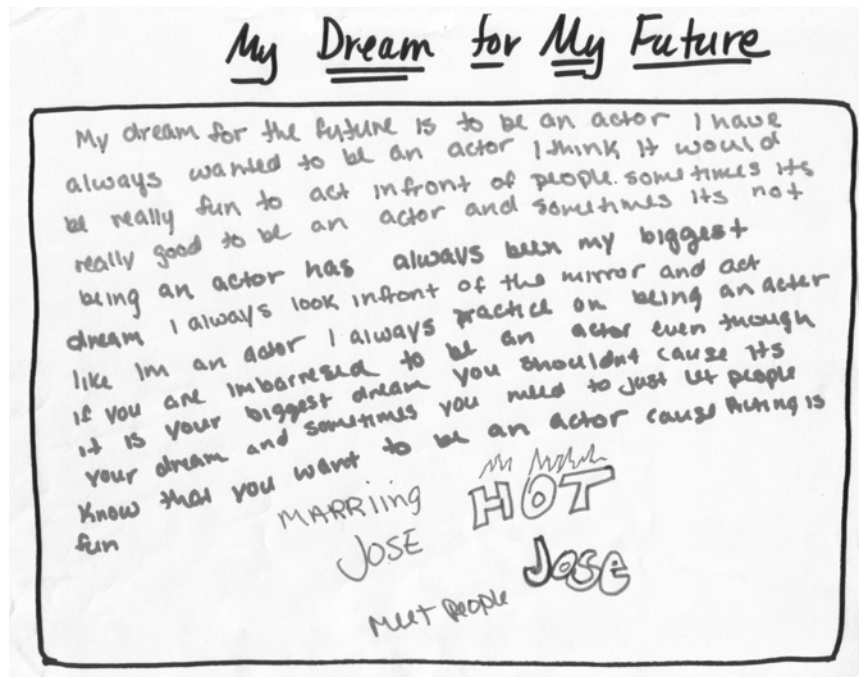 My Dream for My Future
My dream for the future is to be an actor I have
always wanted to be an actor I think it would
be really fun to act infront of people. sometimes its
really good to be an actor and sometimes its not
being an actor has always been my biggest
dream I always look infront of the mirror and act
like Im an actor I always practice on being an acter
if you are imbarresed to be an actor even though
it is your biggest dream you shouldnt cause its
your dream and sometimes you need to just let people
know that you want to be an actor cause Acting is
fun
MARRiing
JOSE
HOT
Jose
Meet people